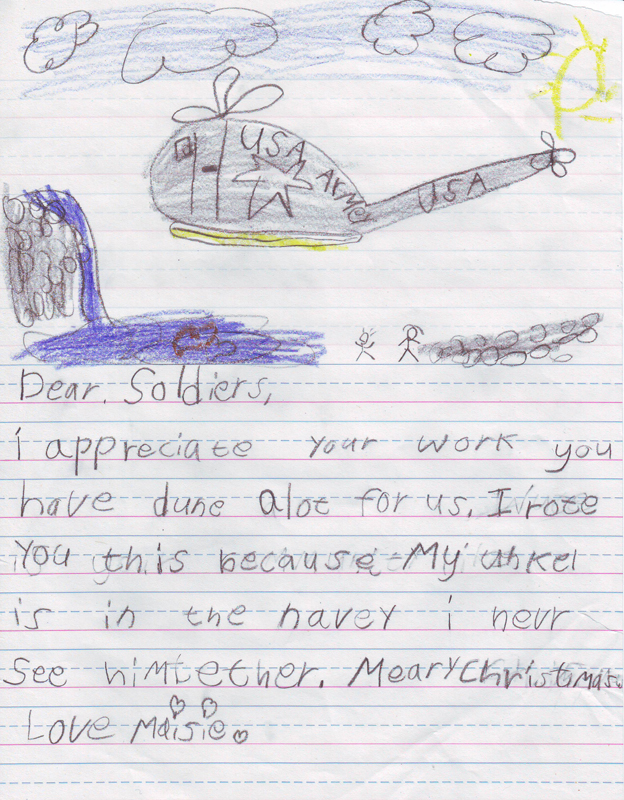 USA Armey
USA
Dear. Soldiers,
i appreciate your work you
have dune alot for us. I rote
you this because My unkel
is in the navey i nevr
see him ether. Meary Christmas.
Love Maisie.